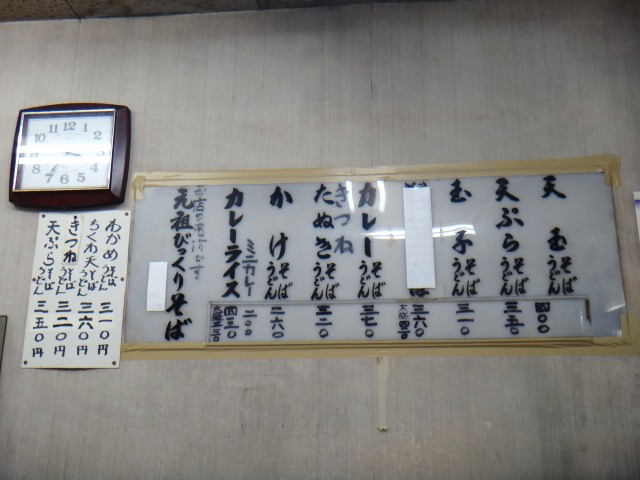 12
11
1
10
2
9
3
8
4
7
6
5
天玉そばうどん 四〇〇
天ぷらそばうどん 三五〇
玉子そばうどん 三一〇
ば 三六〇
カレーそばうどん 三七〇
きつね
たぬきそばうどん 三二〇
かけそばうどん 二六〇
ミニカレー 二〇〇
カレーライス 四三〇
大盛五三〇
当店の名物です
元祖びっくりそば
わかめそばうどん 三一〇円
ちくわ天そば 三六〇円
きつねそばうどん 三二〇円
天ぷらそばうどん 三五〇円